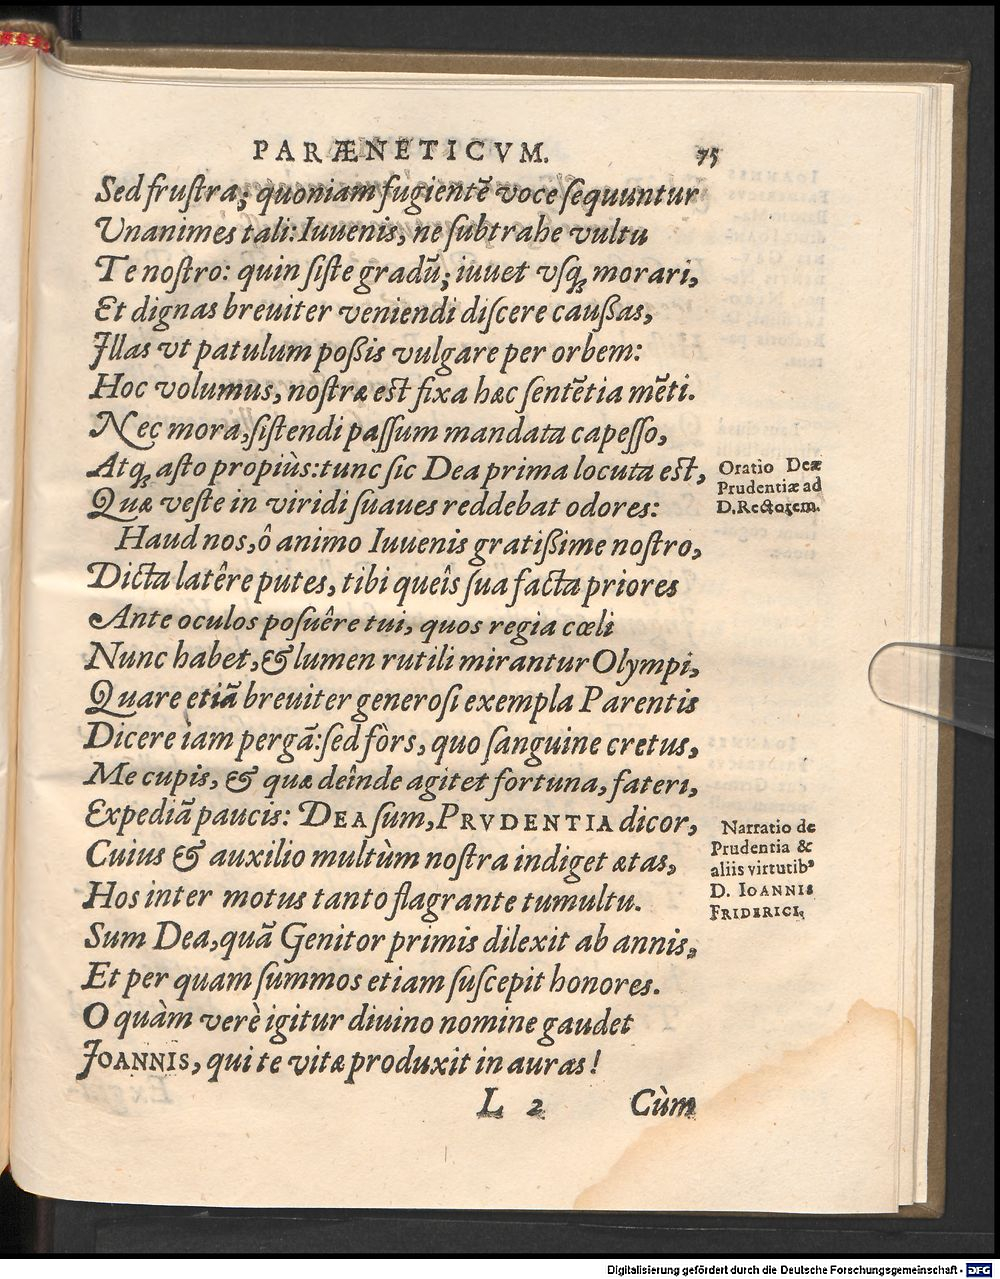 PARÆNETICVM. 75
Sed fruſtra; quoniam fugientē voce ſequuntur
Unanimes tali: Iuuenis, ne ſubtrahe vultu
Te noſtro: quin ſiſte gradū; iuuet vſq́ morari,
Et dignas breuiter veniendi diſcere cauſſas,
Illas vt patulum poſſis vulgare per orbem:
Hoc volumus, noſtræ eſt fixa hæc ſentētia mēti.
Nec mora, ſiſtendi paſſum mandata capeſſo,
Atq́ aſto propiùs: tunc ſic Dea prima locuta eſt,
Quæ veſte in viridi ſuaues reddebat odores:
Haud nos, ô animo Iuuenis gratiſſime noſtro,
Dicta latêre putes, tibi queîs ſua facta priores
Ante oculos poſuêre tui, quos regia cœli
Nunc habet, & lumen rutili mirantur Olympi,
Quare etiā breuiter generoſi exempla Parentis
Dicere iam pergā: ſed fòrs, quo ſanguine cretus,
Me cupis, & quæ deînde agitet fortuna, fateri,
Expediā paucis: DEA ſum, PRVDENTIA dicor,
Cuius & auxilio multùm noſtra indiget ætas,
Hos inter motus tanto flagrante tumultu.
Sum Dea, quā Genitor primis dilexit ab annis,
Et per quam ſummos etiam ſuſcepit honores.
O quàm verè igitur diuino nomine gaudet
IOANNIS, qui te vitæ produxit in auras!
L 2 Cùm
Oratio Deæ
Prudentiæ ad
D. Rectorem.
Narratio de
Prudentia &
aliis virtutibꝰ
D. IOANNIS
FRIDERICI,
Digitalisierung gefördert durch die Deutsche Forschungsgemeinschaft - DFG